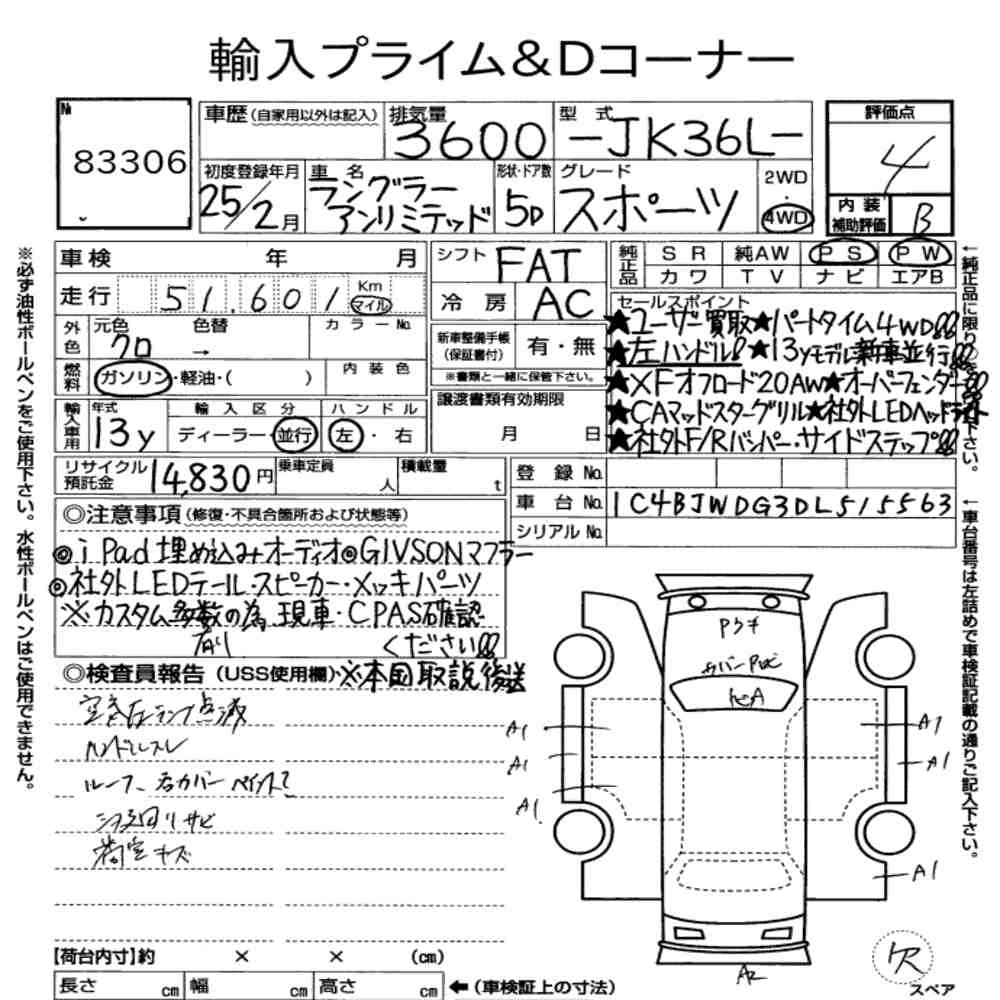 輸入プライム&Dコーナー
№ 83306
車歴(自家用以外は記入)
排気量 3600
型式 -JK36L-
評価点 4
初度登録年月 25/2月
車名 ラングラー アンリミテッド
形状・ドア数 5D
グレード スポーツ
2WD・4WD
内装補助評価 B
車検 年 月
シフト FAT
純正品 SR 純AW PS PW
カワ TV ナビ エアB
走行 51,601 Km マイル
冷房 AC
セールスポイント
★ユーザー買取★パートタイム4WD!!
★左ハンドル!★13yモデル新車並行!!
★XFオフロード20AW★オーバーフェンダー
★CAマッドスターグリル★社外LEDヘッドライト
★社外F/Rバンパー・サイドステップ!!
外色 元色 クロ → 色替 カラーNo.
新車整備手帳(保証書付) 有・無
※書類と一緒に保管下さい。
燃料 ガソリン・軽油・( ) 内装色
輸入車用 年式 13y
輸入区分 ディーラー・並行
ハンドル 左・右
譲渡書類有効期限 月 日
リサイクル預託金 14,830円
乗車定員 人
積載量 t
登録No.
車台No. 1C4BJWDG3DL515563
シリアルNo.
◎注意事項(修復・不具合箇所および状態等)
◎iPad埋め込みオーディオ◎GIVSONマフラー
◎社外LEDテール・スピーカー・メッキパーツ
※カスタム多数の為現車・CPAS確認
有り
ください!!
◎検査員報告(USS使用欄)※本国取説後送
空気圧ランプ点滅
ハンドルスレ
ルーフ、右カバーペイント
下廻りサビ
荷室キズ
Pウキ
A1
A1
A1
A1
A1
A1
A2
スペア
【荷台内寸】約 × × (cm)
長さ cm 幅 cm 高さ cm ←(車検証上の寸法)
※必ず油性ボールペンをご使用下さい。水性ボールペンはご使用できません。
←純正品に限り○を 下さい。
←車台番号は左詰めで車検証記載の通りご記入下さい。